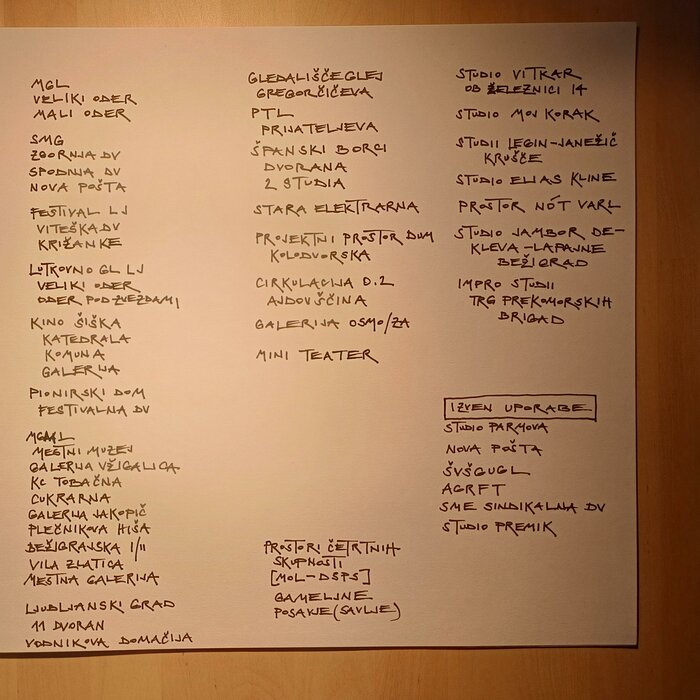 MGL
VELIKI ODER
MALI ODER
SMG
ZGORNJA DV
SPODNJA DV
NOVA POŠTA
FESTIVAL LJ
VITEŠKA DV
KRIŽANKE
LUTKOVNO GL LJ
VELIKI ODER
ODER POD ZVEZDAMI
KINO ŠIŠKA
KATEDRALA
KOMUNA
GALERIJA
PIONIRSKI DOM
FESTIVALNA DV
MGML
MESTNI MUZEJ
GALERIJA VŽIGALICA
KC TOBAČNA
CUKRARNA
GALERIJA JAKOPIČ
PLEČNIKOVA HIŠA
BEŽIGRAJSKA I/II
VILA ZLATICA
MESTNA GALERIJA
LJUBLJANSKI GRAD
11 DVORAN
VODNIKOVA DOMAČIJA
GLEDALIŠČE GLEJ
GREGORČIČEVA
PTL
PRIJATELJEVA
ŠPANSKI BORCI
DVORANA
2 STUDIA
STARA ELEKTRARNA
PROJEKTNI PROSTOR DUM
KOLODVORSKA
CIRKULACIJA 0.2
AJDOVŠČINA
GALERIJA OSMO/ZA
MINI TEATER
PROSTORI ČETRTNIH
SKUPNOSTI
[MOL-DSPS]
GAMELJNE
POSAVJE (SAVLJE)
STUDIO VITKAR
OB ŽELEZNICI 14
STUDIO MOJ KORAK
STUDII LEGIN-JANEŽIČ
KRUŠČE
STUDIO ELIAS KLINE
PROSTOR NÓT VARL
STUDIO JAMBOR DE-
KLEVA-LAPAJNE
BEŽIGRAD
IMPRO STUDII
TRG PREKOMORSKIH
BRIGAD
IZVEN UPORABE
STUDIO PARMOVA
NOVA POŠTA
ŠVŠGUGL
AGRFT
SME SINDIKALNA DV
STUDIO PREMIK